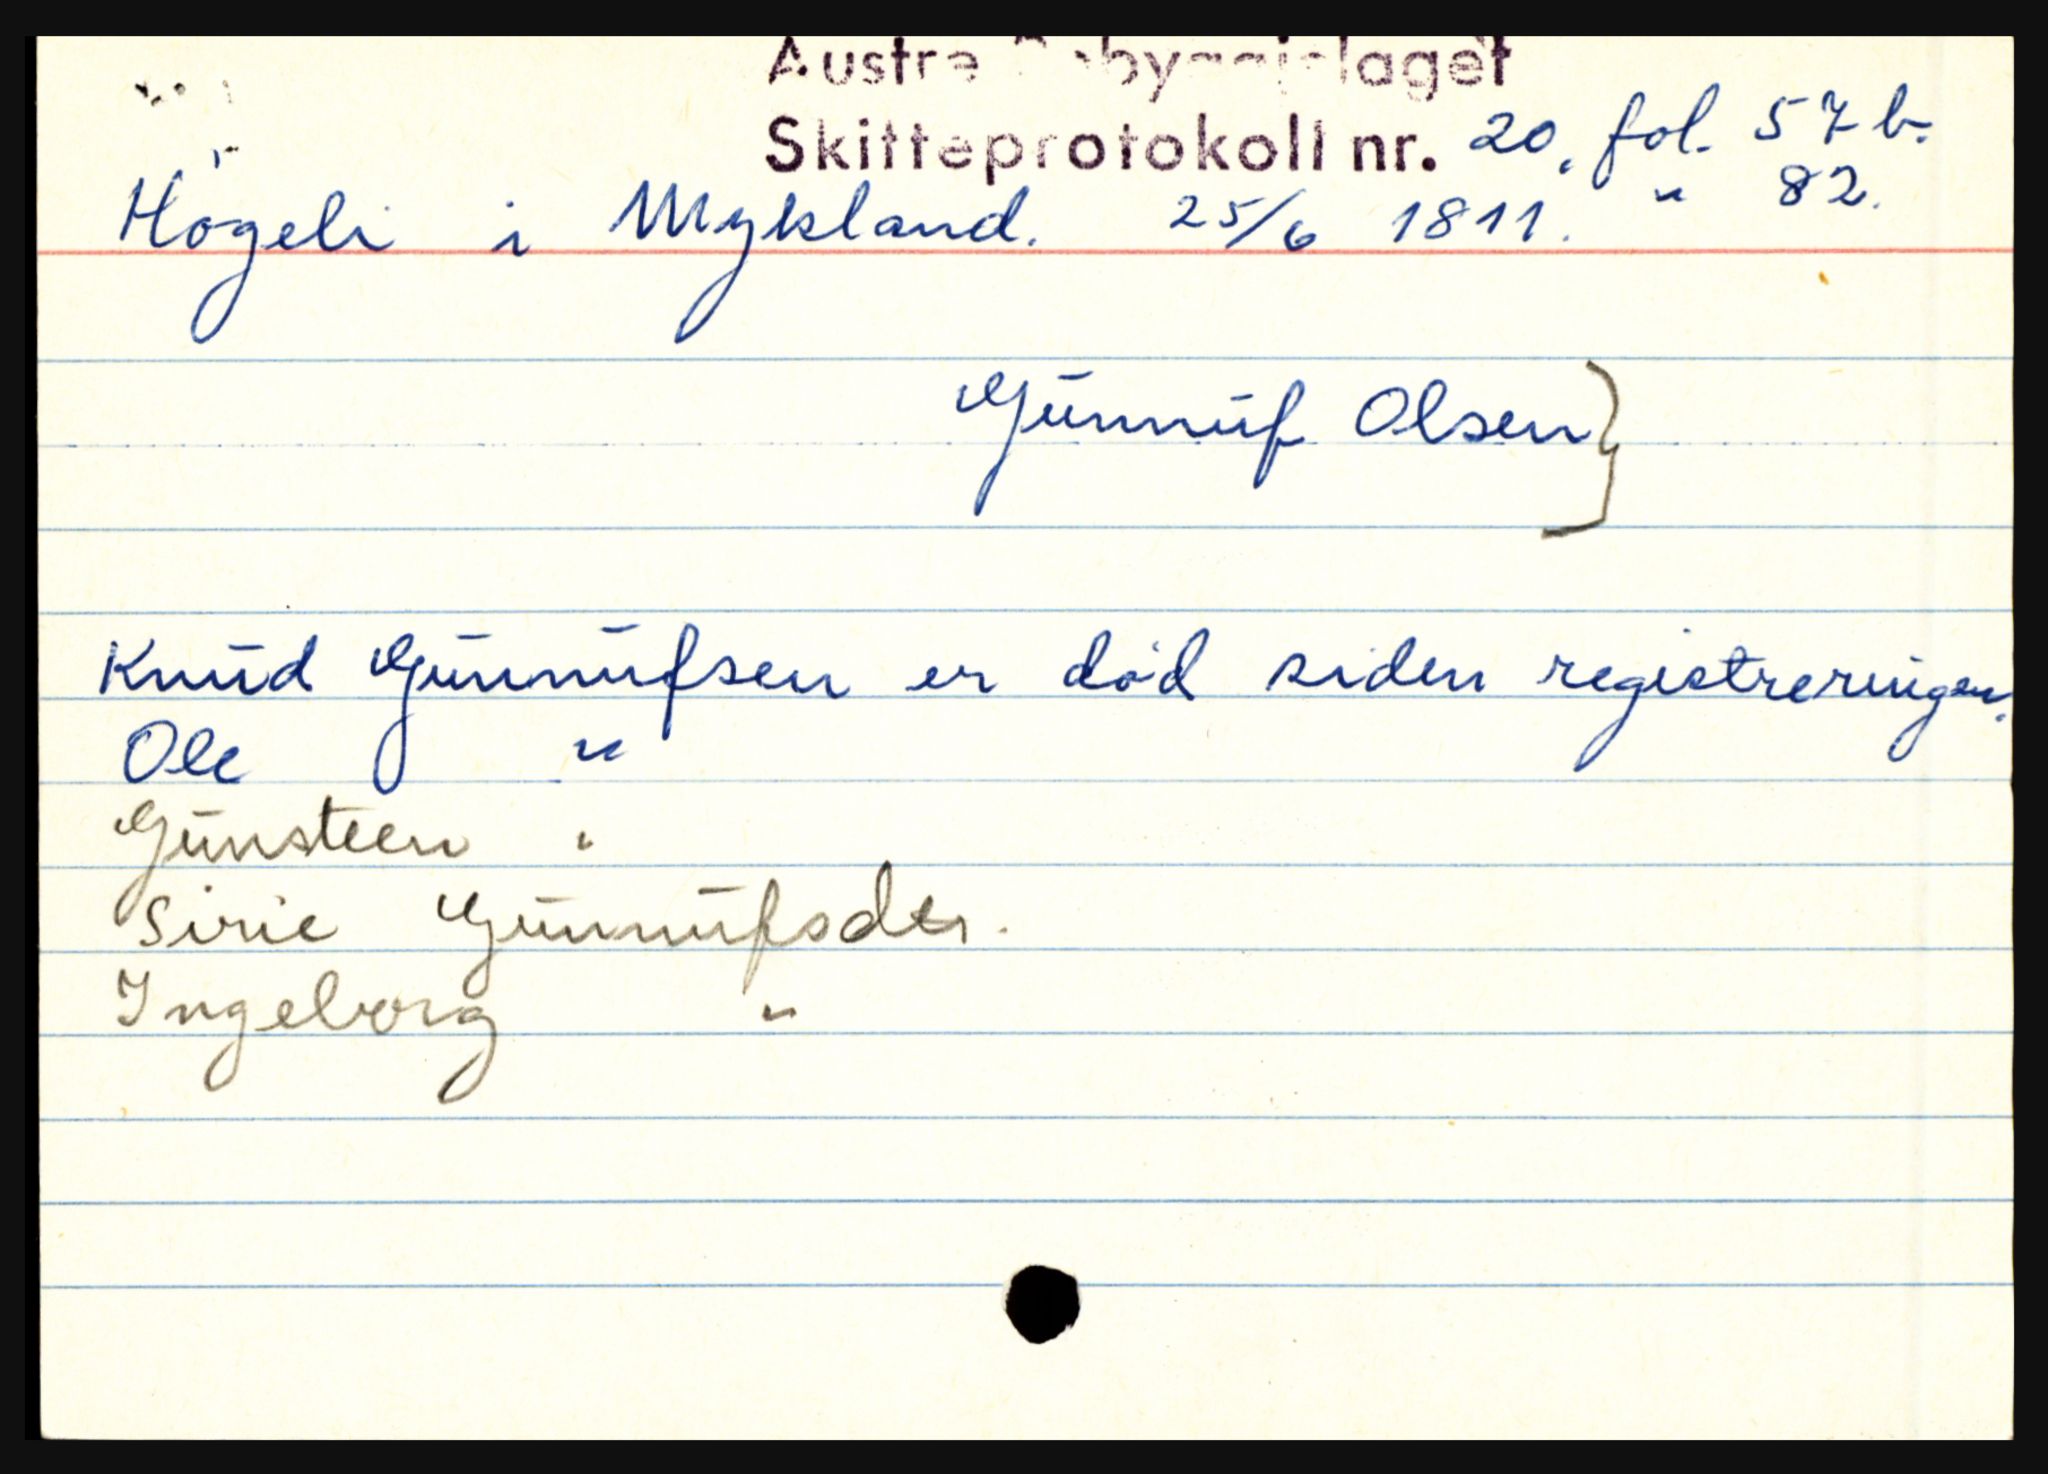 Austre
Skifteprotokoll nr. 20. fol. 57 b.
Høgeli i Mykland. 25/6 1811. " 82.
Gunnuf Olsen}
Knud Gunnufsen er død siden registreringen.
Ole "
Gunsteen "
Sirie Gunnufsdtr.
Ingeborg "